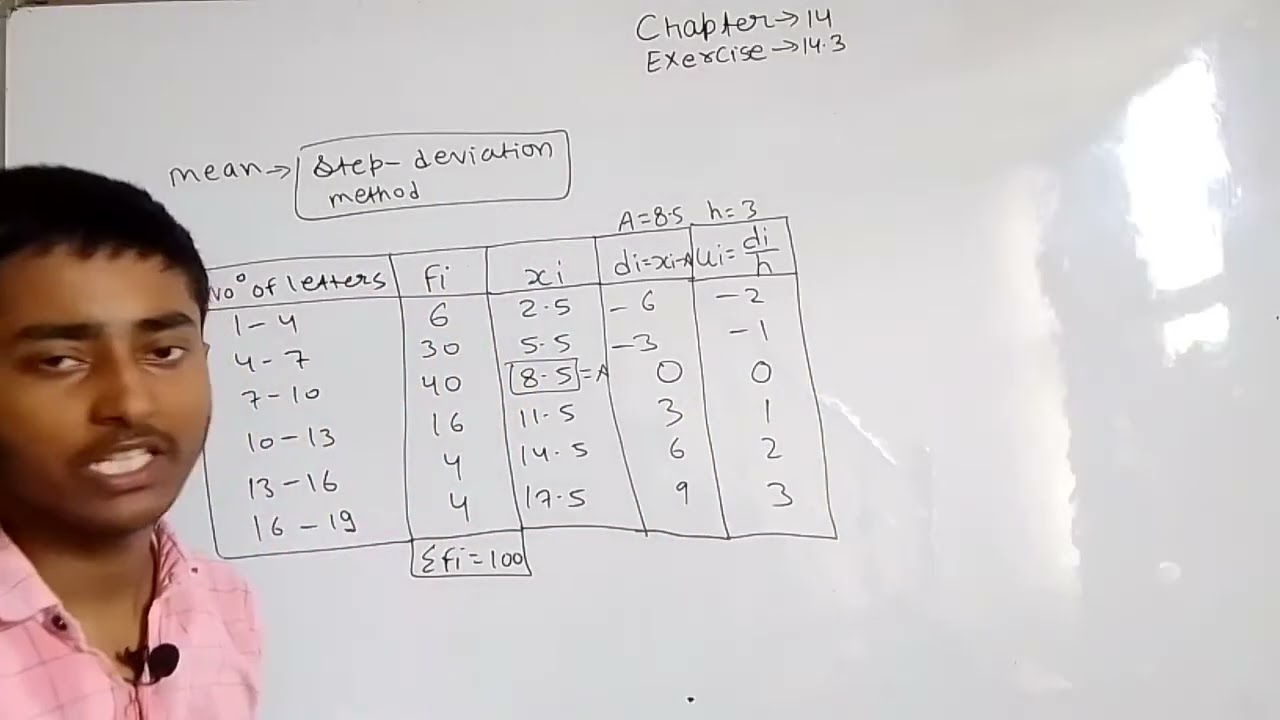 Chapter → 14
Exercise → 14.3
mean → Step-deviation
method
A=8.5 h=3
No° of letters fi xi di=xi-A ui=di/h
1-4 6 2.5 -6 -2
4-7 30 5.5 -3 -1
7-10 40 8.5=A 0 0
10-13 16 11.5 3 1
13-16 4 14.5 6 2
16-19 4 17.5 9 3
Σfi=100